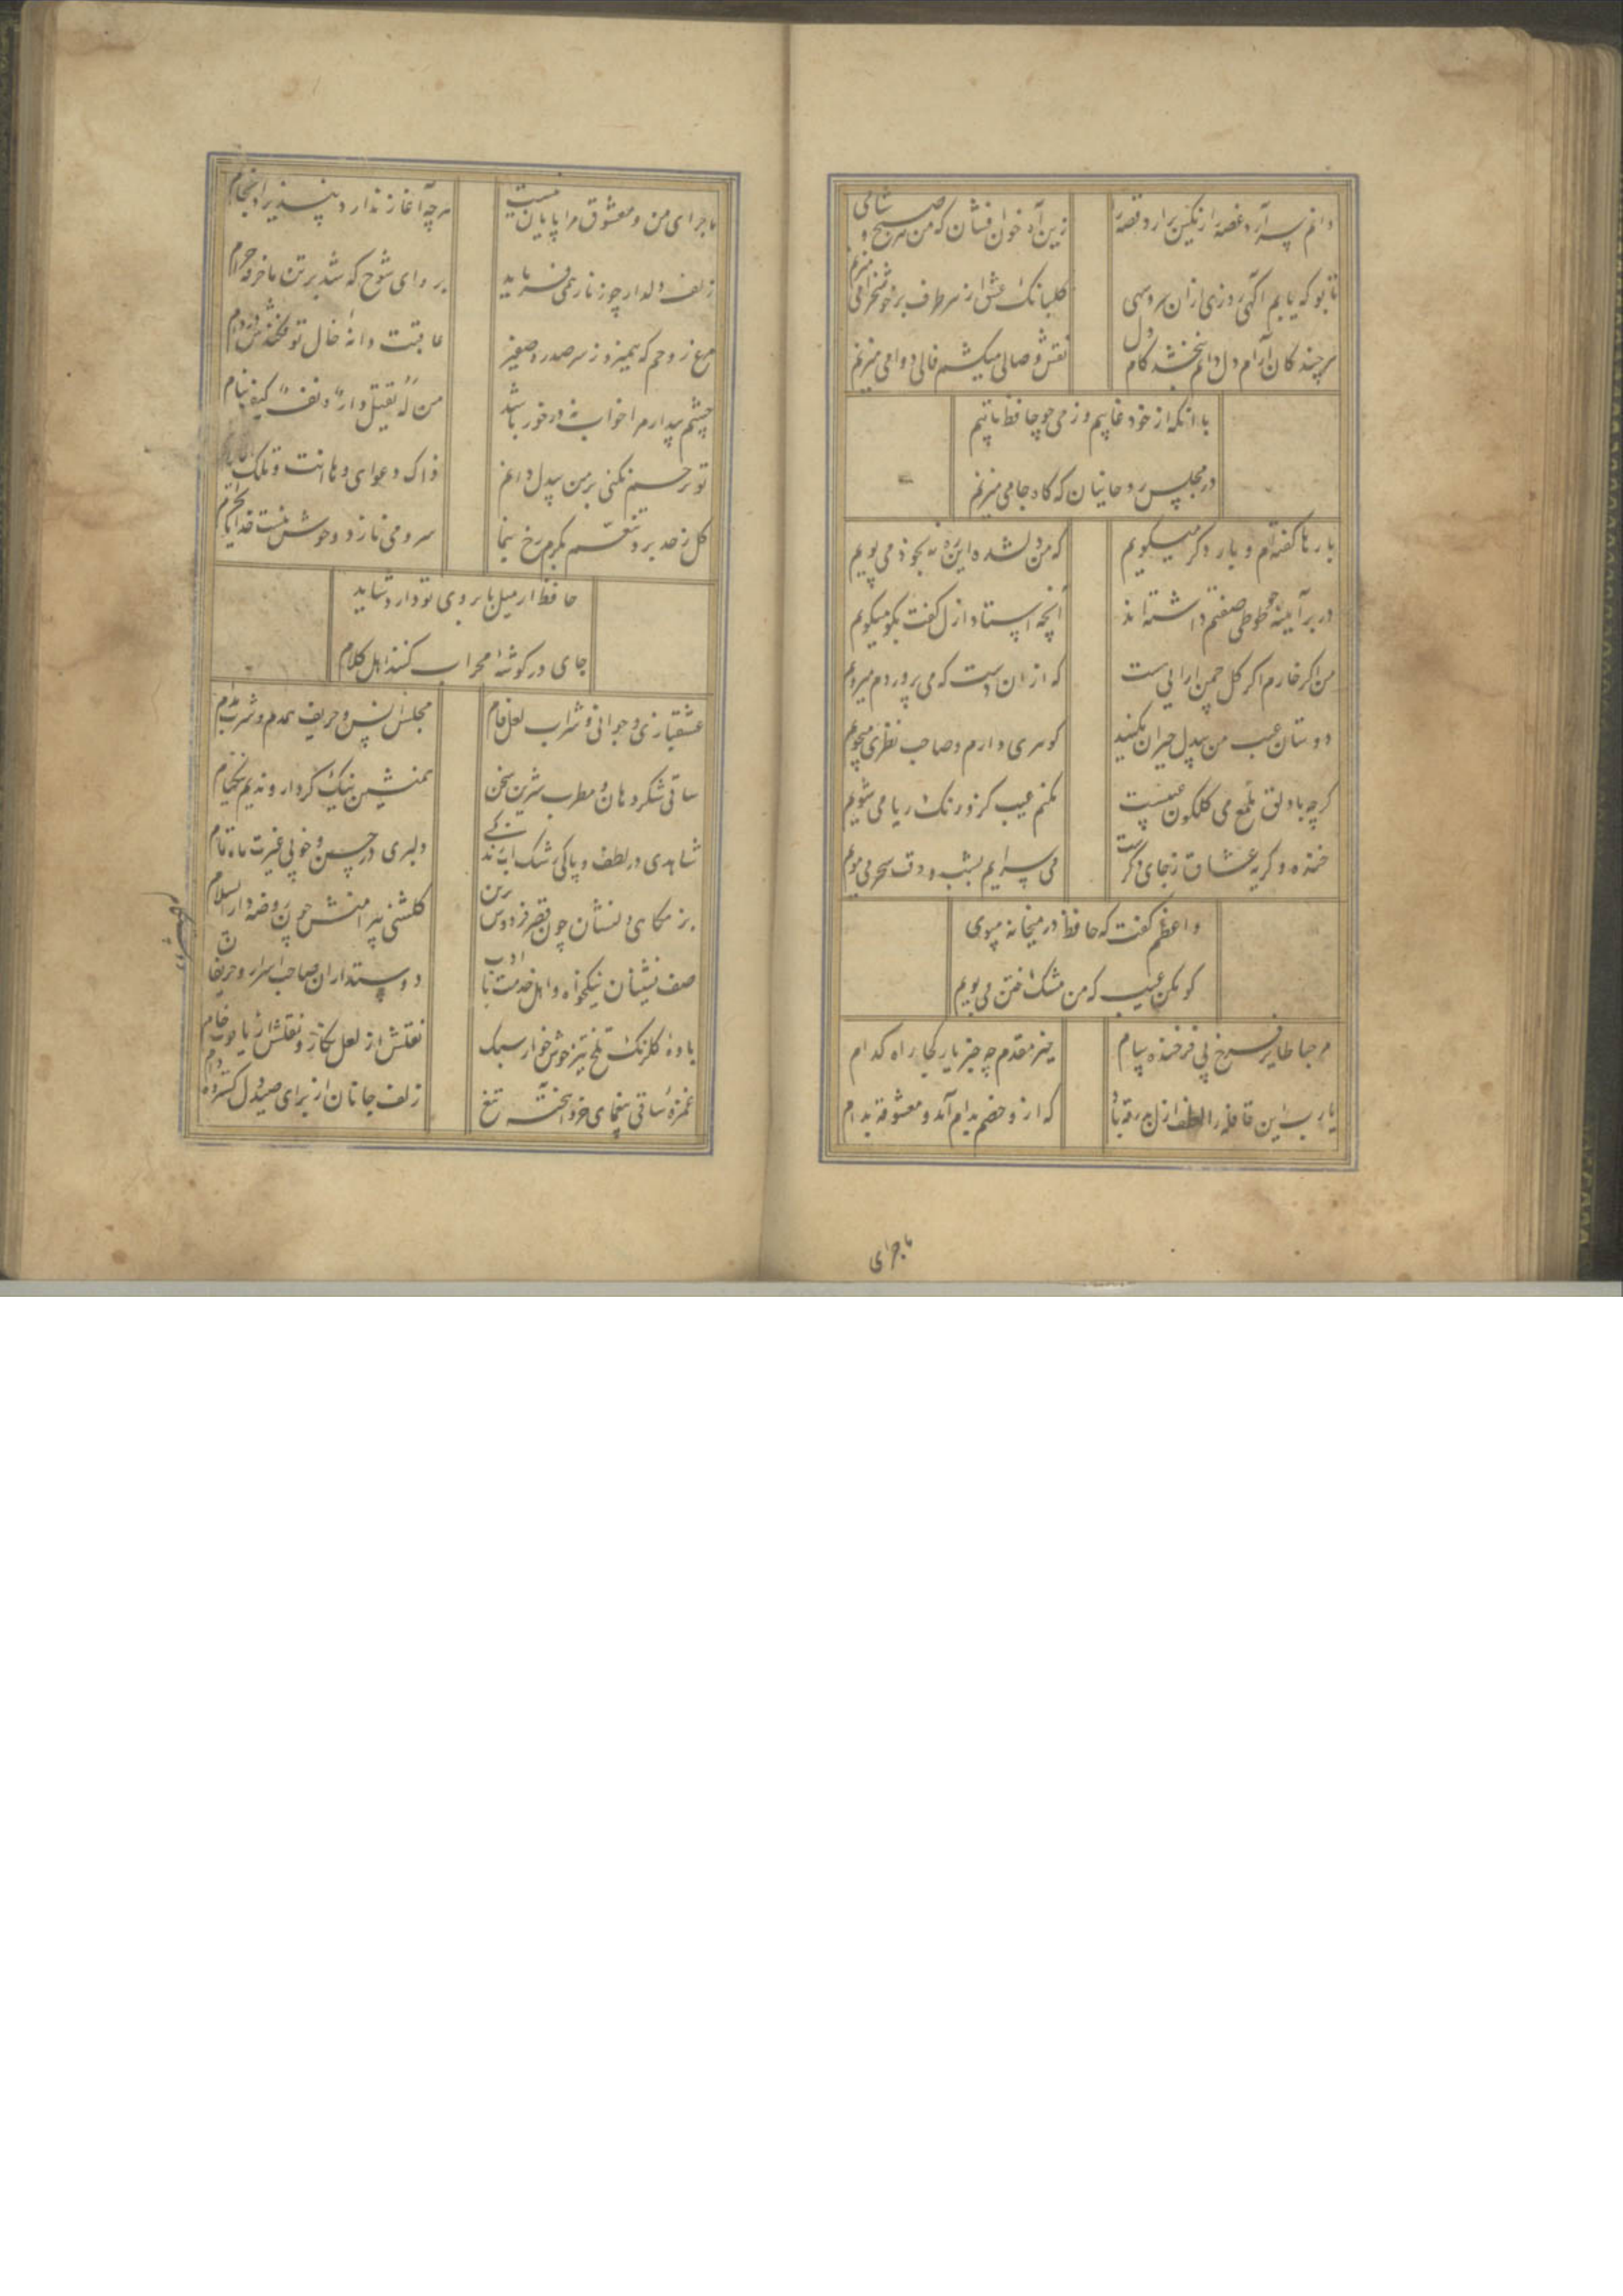 دانم سر آرد غصه را رنگین برآرد قصه را
زین آه خون افشان که من هر صبح و شامی میزنم
تا بو که یابم آگهی روزی از آن سرو سهی
گلبانک عشق از هر طرف بر خوشخرامی میزنم
هر چند کان آرام دل دانم نبخشد کام دل
نقش وصالی میکشم فالی دوامی میزنم
با آنکه از خود غایبم وز می چو حافظ تایبم
در مجلس روحانیان که کاه جامی میزنم
بارها گفته‌ام و بار دکر میکویم
که من دلشده این ره نه بخود می پویم
در بر آینه طوطی صفتم داشته اند
آنچه استاد ازل گفت بکو میکویم
من اگر خارم اکر کل چمن ارایی ست
که از ان دست که می پروردم میرویم
دوستان عیب من بیدل حیران مکنید
کوهری دارم و صاحب نظری میجویم
کرچه با دلق ملمع می کلکون عیبست
مکنم عیب کزو رنک ریا می شویم
خنده و کریه عشاق ز جای دکرست
می سرایم بشب و وقت سحر می مویم
واعظم گفت که حافظ در میخانه مبوی
کو مکن عیب که من مشک ختن می بویم
مرحبا طایر فرخ پی فرخنده پیام
خیر مقدم چه خبر یار کجا راه کدام
یارب این قافله را لطف ازل بدرقه باد
که ازو خصم بدام آمد و معشوقه بدام
ماجرای
ماجرای من و معشوق مرا پایان نیست
هرچه آغاز ندارد نپذیرد انجام
زلف دلدار چو زنار همی فرماید
برو ای شیخ که شد بر تن ما خرقه حرام
مرغ روحم که همیزد ز سر سدره صفیر
عاقبت دانه خال تو فکندش در دام
چشم بیدار مرا خواب نه در خور باشد
من له تقتل داء دنف کیف ینام
تو ترحم نکنی بر من بیدل دانم
ذاک دعوای وها انت و تلک الایام
کل ز حد برد تنعم بکرم رخ بنما
سرو می نازد و خوش نیست خدا را بخرام
حافظ ار میل بابروی تو دارد شاید
جای در کوشه محراب کنند اهل کلام
عشقبازی و جوانی و شراب لعل فام
مجلس انس و حریف همدم و شرب مدام
ساقی شکر دهان و مطرب شیرین سخن
همنشین نیک کردار و ندیم نیکنام
شاهدی در لطف و پاکی رشک آب زندکی
دلبری در حسن و خوبی غیرت ماه تمام
بزمکاهی دلنشان چون قصر فردوس برین
کلشنی پیرامنش چون روضه دار السلام
صف نشینان نیکخواه و اهل خدمت با ادب
دوستداران صاحب اسرار و حریفان
باده کلرنک تلخ تیز خوش خوار سبک
نقلش از لعل نکار و نقلش از یاقوت خام
غمزه ساقی بیغمای خرد آهخته تیغ
زلف جانان از برای صید دل کسترده دام
دوستکام